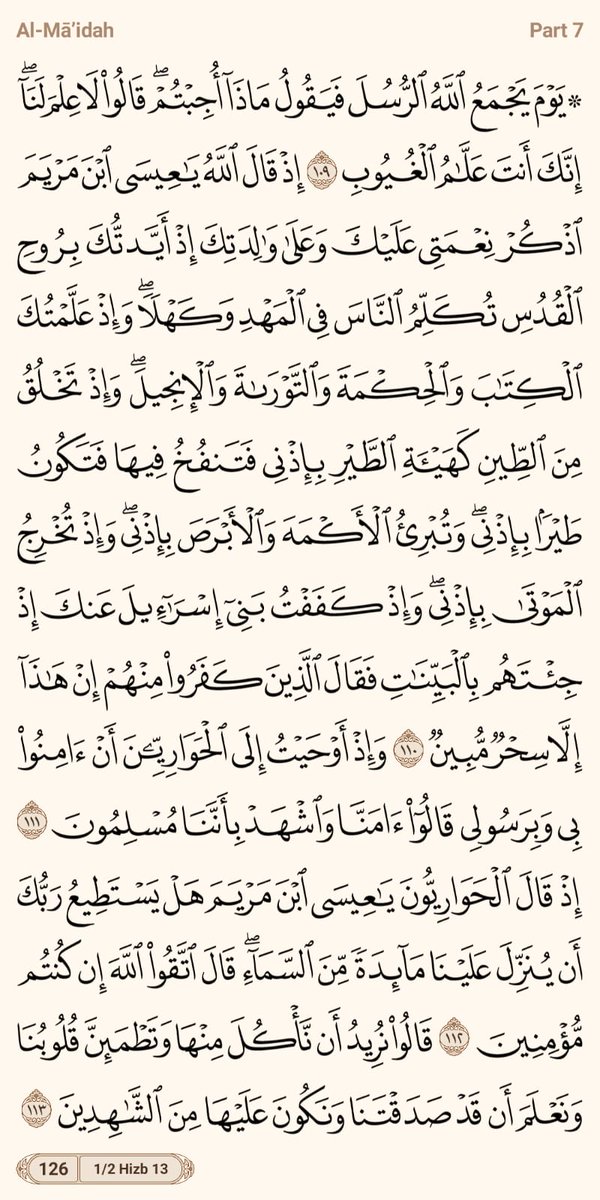 Al-Mā’idah
Part 7
۞ يَوْمَ يَجْمَعُ ٱللَّهُ ٱلرُّسُلَ فَيَقُولُ مَاذَآ أُجِبْتُمْۖ قَالُوا۟ لَا عِلْمَ لَنَآۖ
إِنَّكَ أَنتَ عَلَّٰمُ ٱلْغُيُوبِ ١٠٩ إِذْ قَالَ ٱللَّهُ يَٰعِيسَى ٱبْنَ مَرْيَمَ
ٱذْكُرْ نِعْمَتِى عَلَيْكَ وَعَلَىٰ وَٰلِدَتِكَ إِذْ أَيَّدتُّكَ بِرُوحِ
ٱلْقُدُسِ تُكَلِّمُ ٱلنَّاسَ فِى ٱلْمَهْدِ وَكَهْلًاۖ وَإِذْ عَلَّمْتُكَ
ٱلْكِتَٰبَ وَٱلْحِكْمَةَ وَٱلتَّوْرَىٰةَ وَٱلْإِنجِيلَۖ وَإِذْ تَخْلُقُ
مِنَ ٱلطِّينِ كَهَيْـَٔةِ ٱلطَّيْرِ بِإِذْنِى فَتَنفُخُ فِيهَا فَتَكُونُ
طَيْرًۢا بِإِذْنِىۖ وَتُبْرِئُ ٱلْأَكْمَهَ وَٱلْأَبْرَصَ بِإِذْنِىۖ وَإِذْ تُخْرِجُ
ٱلْمَوْتَىٰ بِإِذْنِىۖ وَإِذْ كَفَفْتُ بَنِىٓ إِسْرَٰٓءِيلَ عَنكَ إِذْ
جِئْتَهُم بِٱلْبَيِّنَٰتِ فَقَالَ ٱلَّذِينَ كَفَرُوا۟ مِنْهُمْ إِنْ هَٰذَآ
إِلَّا سِحْرٌ مُّبِينٌ ١١٠ وَإِذْ أَوْحَيْتُ إِلَى ٱلْحَوَارِيِّـۧنَ أَنْ ءَامِنُوا۟
بِى وَبِرَسُولِى قَالُوٓا۟ ءَامَنَّا وَٱشْهَدْ بِأَنَّنَا مُسْلِمُونَ ١١١
إِذْ قَالَ ٱلْحَوَارِيُّونَ يَٰعِيسَى ٱبْنَ مَرْيَمَ هَلْ يَسْتَطِيعُ رَبُّكَ
أَن يُنَزِّلَ عَلَيْنَا مَآئِدَةً مِّنَ ٱلسَّمَآءِۖ قَالَ ٱتَّقُوا۟ ٱللَّهَ إِن كُنتُم
مُّؤْمِنِينَ ١١٢ قَالُوا۟ نُرِيدُ أَن نَّأْكُلَ مِنْهَا وَتَطْمَئِنَّ قُلُوبُنَا
وَنَعْلَمَ أَن قَدْ صَدَقْتَنَا وَنَكُونَ عَلَيْهَا مِنَ ٱلشَّٰهِدِينَ ١١٣
126
1/2 Hizb 13